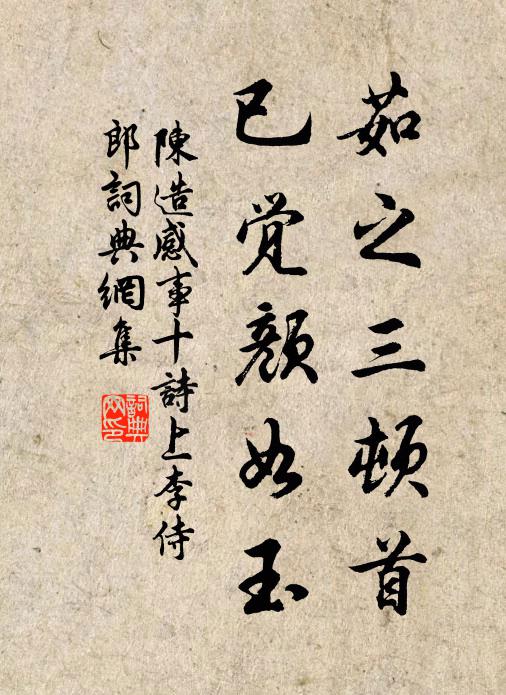 茹之三顿首
已觉颜如玉
陳造感事十詩上李侍
郎詞典網集
詞典网印